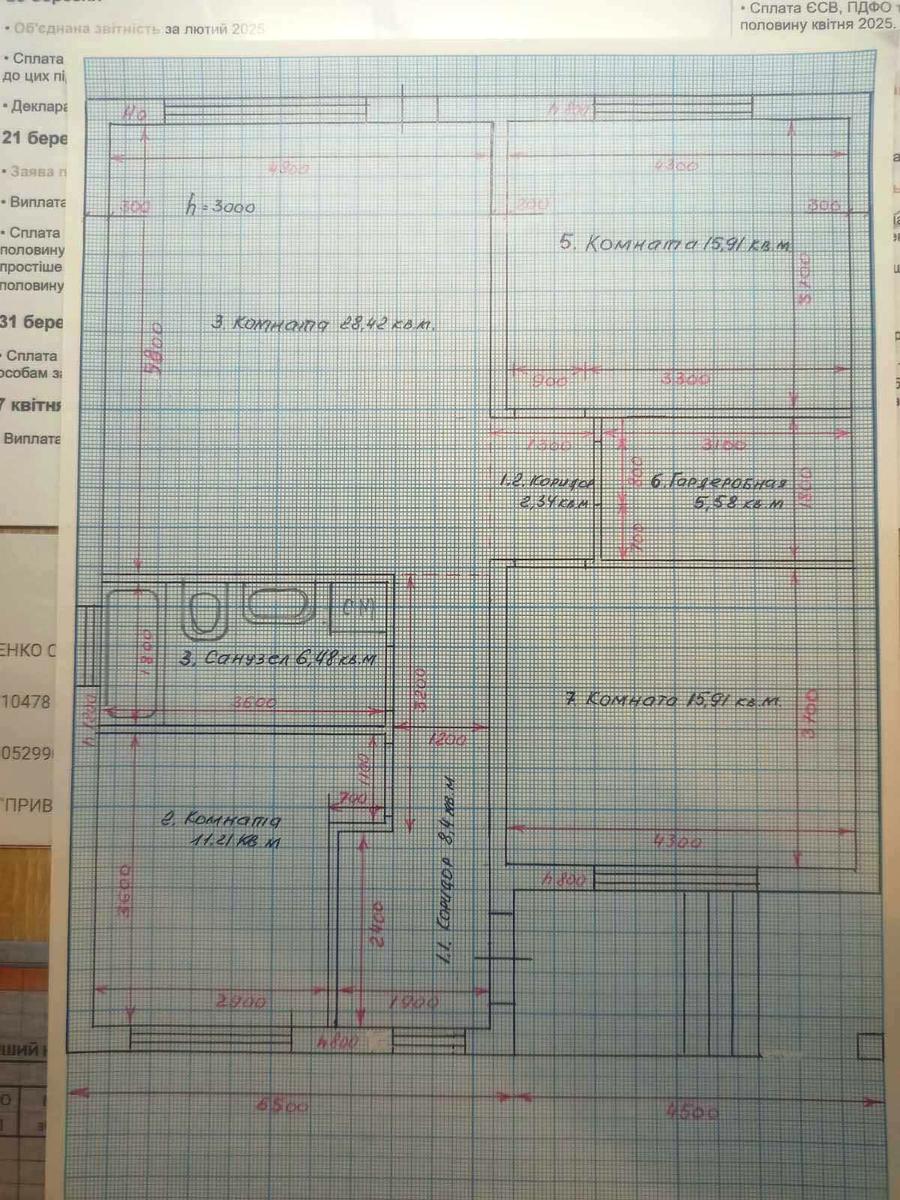 • Об'єднана звітність за лютий 2025
• Сплата ЄСВ, ПДФО
половину квітня 2025.
• Сплата
до цих пі
• Деклара
21 бере
• Заява п
• Виплата
• Сплата
половину
простіше
половину
31 бере
• Сплата
особам з
7 квітня
Виплата
ЕНКО С
10478
05299
"ПРИВ
ший н
h 800
4300
4300
300
h = 3000
200
300
5. Комната 15,91 кв.м.
3700
3. Комната 28,42 кв.м.
5800
900
3300
1300
3100
1.2. Коридор
2,34 кв.м
800
6. Гардеробная
5,58 кв.м
1800
700
СМ
1800
3. Санузел 6,48 кв.м
3200
3600
h 1200
7. Комната 15,91 кв.м.
3700
1200
1100
700
2. Комната
11.21 кв.м
1.1. Коридор 8,4 кв.м
4300
h 800
3600
2400
2900
1900
h 800
6500
4500